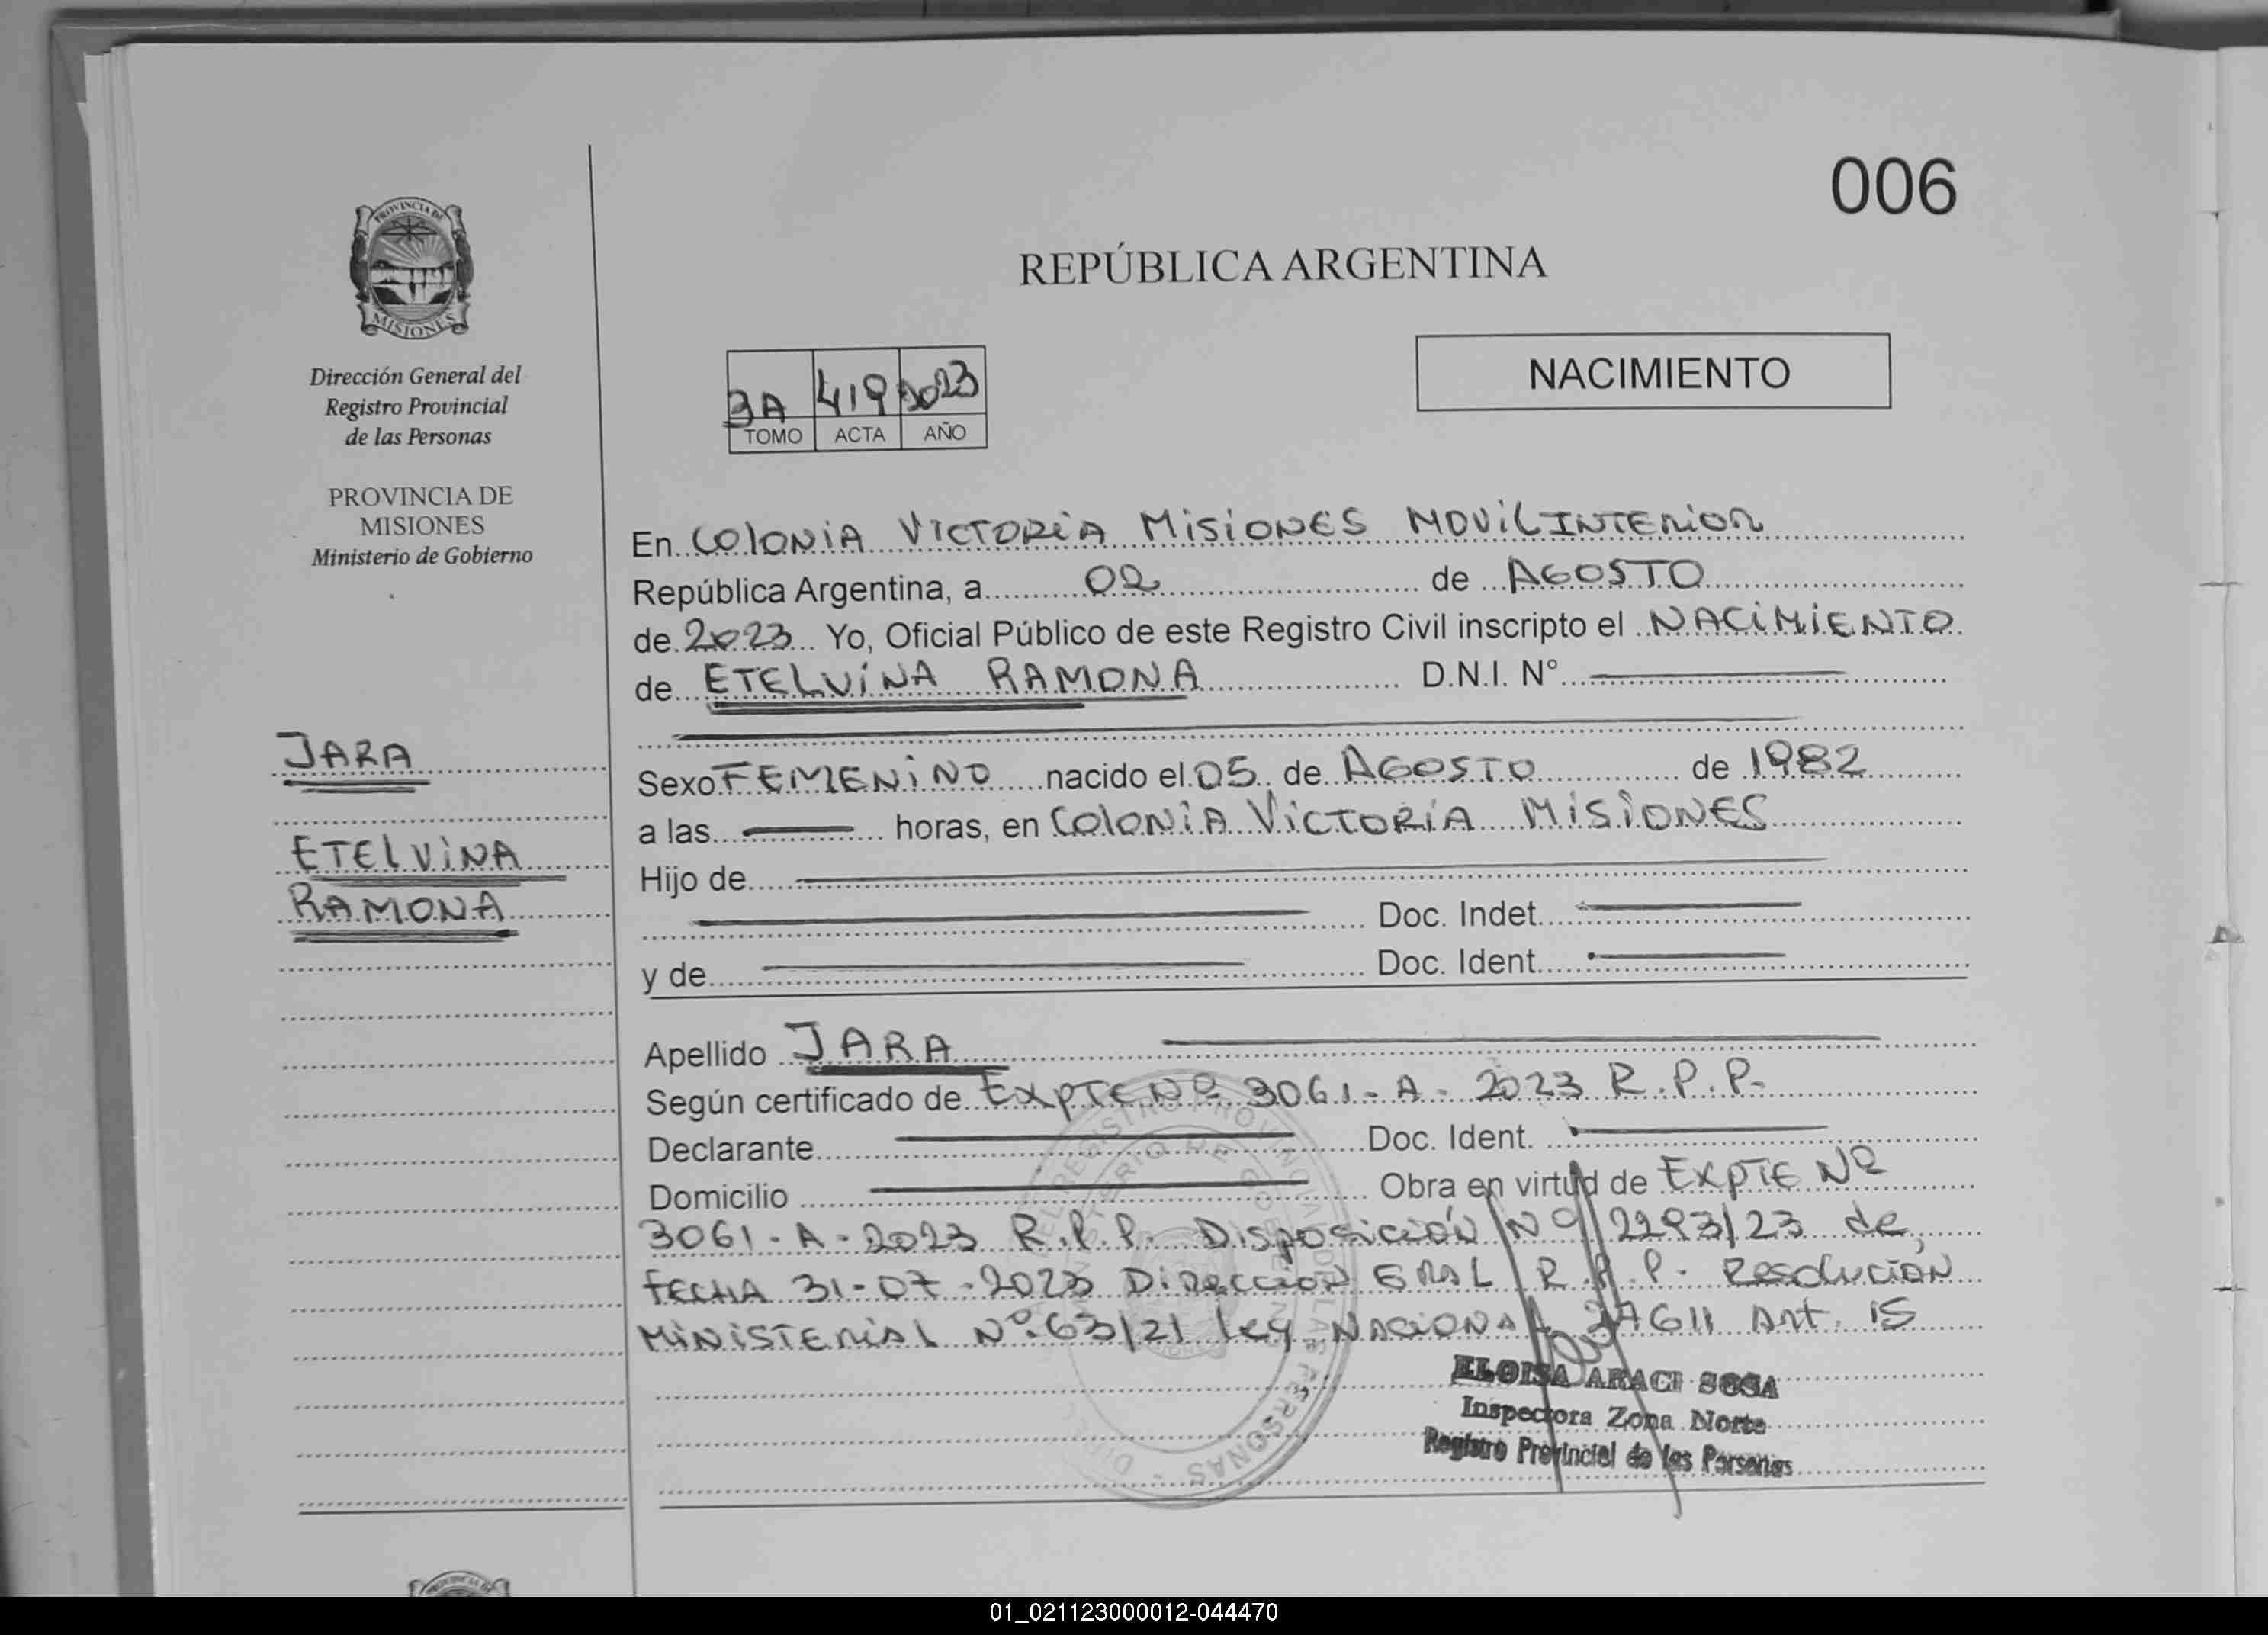 006
PROVINCIA DE
MISIONES
Dirección General del
Registro Provincial
de las Personas
PROVINCIA DE
MISIONES
Ministerio de Gobierno
JARA
ETELVINA
RAMONA
REPÚBLICA ARGENTINA
NACIMIENTO
3A 419 2023
TOMO ACTA AÑO
En COLONIA VICTORIA MISIONES MOVIL INTERIOR
República Argentina, a 02 de AGOSTO
de 2023 Yo, Oficial Público de este Registro Civil inscripto el NACIMIENTO
de ETELVINA RAMONA D.N.I. N°
Sexo FEMENINO nacido el 05 de AGOSTO de 1982
a las horas, en COLONIA VICTORIA MISIONES
Hijo de
Doc. Indet.
y de Doc. Ident.
Apellido JARA
Según certificado de EXPTE Nº 3061-A-2023 R.P.P.
Declarante Doc. Ident.
Domicilio Obra en virtud de EXPTE Nº
3061-A-2023 R.P.P. Disposición Nº 2293/23 de
FECHA 31-07-2023 Dirección GRAL R.P.P. Resolución
MINISTERIAL Nº 63/21 Ley NACIONAL 27611 Art. 15
ELOISA ARACI SOSA
Inspectora Zona Norte
Registro Provincial de las Personas
01_021123000012-044470